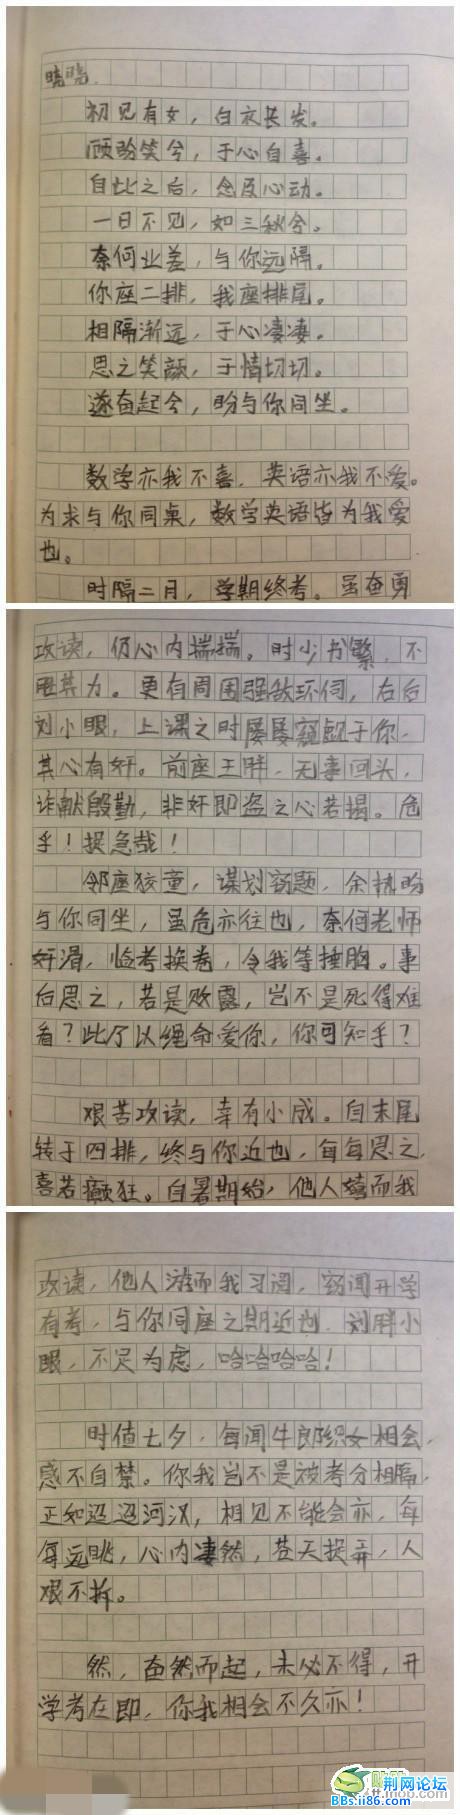 晓晓.
初见有女，白衣长发。
顾盼笑兮，于心自喜。
自此之后，念及心动。
一日不见，如三秋兮。
奈何业差，与你远隔。
你座二排，我座排尾。
相隔渐远，于心凄凄。
思之笑颜，于情切切。
遂奋起兮，盼与你同坐。
数学亦我不喜，英语亦我不爱。
为求与你同桌，数学英语皆为我爱
也。
时隔二月，学期终考。虽奋勇
攻读，仍心内揣揣。时少书繁，不
胜其力。更有周围强敌环伺，右后
刘小眼，上课之时屡屡窥觎于你，
其心有奸。前座王胖，无事回头，
诈献殷勤，非奸即盗之心若揭。危
乎！捉急哉！
邻座狡童，谋划窃题，余精盼
与你同坐，虽危亦往也，奈何老师
奸滑，临考换卷，令我等捶胸。事
后思之，若是败露，岂不是死得难
看？此乃以绳命爱你，你可知乎？
艰苦攻读，幸有小成。自末尾
转于四排，终与你近也，每每思之，
喜若癫狂。自暑期始，他人嬉而我
攻读，他人游而我习阅，窃闻开学
有考，与你同座之期近也．刘胖小
眼，不足为虑，哈哈哈哈！
时值七夕，每闻牛郎织女相会，
感不自禁。你我岂不是被考分相隔，
正如迢迢河汉，相见不能会亦，每
每远眺，心内凄然，苍天捉弄，人
艰不拆。
然，奋然而起，未必不得，开
学考在即，你我相会不久亦！
荆网论坛
BBs.ii86.com